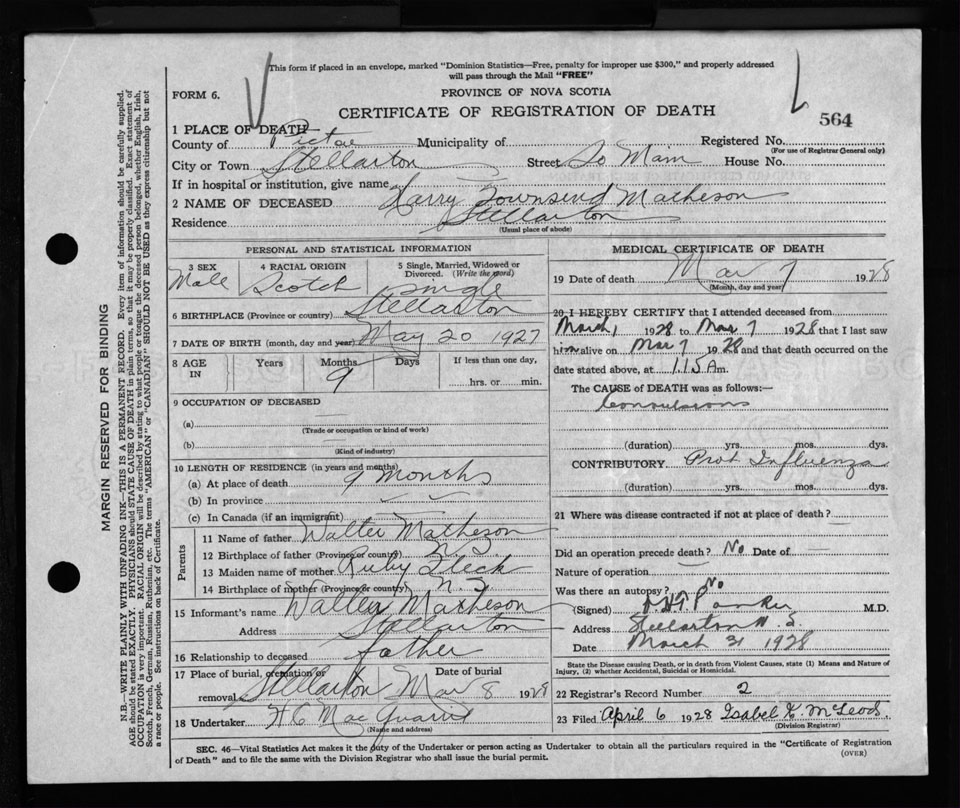 This form if placed in an envelope, marked "Dominion Statistics—Free, penalty for improper use $300," and properly addressed
will pass through the Mail "FREE"
FORM 6.
PROVINCE OF NOVA SCOTIA
CERTIFICATE OF REGISTRATION OF DEATH
564
1 PLACE OF DEATH—
County of Pictou Municipality of Registered No.
(For use of Registrar General only)
City or Town Stellarton Street So Main House No.
If in hospital or institution, give name
2 NAME OF DECEASED Harry Townsend Matheson
Residence Stellarton
(Usual place of abode)
PERSONAL AND STATISTICAL INFORMATION
3 SEX 4 RACIAL ORIGIN 5 Single, Married, Widowed or
Divorced. (Write the word)
Male Scotch Single
6 BIRTHPLACE (Province or country) Stellarton
7 DATE OF BIRTH (month, day and year) May 20 1927
8 AGE IN Years Months Days If less than one day,
9 hrs. or min.
9 OCCUPATION OF DECEASED
(a)
(Trade or occupation or kind of work)
(b)
(Kind of industry)
10 LENGTH OF RESIDENCE (in years and months)
(a) At place of death 9 Months
(b) In province
(c) In Canada (if an immigrant)
Parents
11 Name of father Walter Matheson
12 Birthplace of father (Province or country) N. S.
13 Maiden name of mother Ruby Fleck
14 Birthplace of mother (Province or country) N. S
15 Informant's name Walter Matheson
Address Stellarton
16 Relationship to deceased father
17 Place of burial, cremation or Date of burial
removal Stellarton Mar 8 1928
18 Undertaker H C MacQuarrie
(Name and address)
MEDICAL CERTIFICATE OF DEATH
19 Date of death Mar 7 1928
(Month, day and year)
20 I HEREBY CERTIFY that I attended deceased from
March 1 1928 to Mar 7 1928 that I last saw
him alive on Mar 7 1928 and that death occurred on the
date stated above, at 1.15 A m.
The CAUSE of DEATH was as follows:—
Convulsions
(duration) yrs. mos. dys.
CONTRIBUTORY Prob Influenza
(duration) yrs. mos. dys.
21 Where was disease contracted if not at place of death?
Did an operation precede death? No Date of
Nature of operation
Was there an autopsy? No
(Signed) Parker M.D.
Address Stellarton N. S.
Date March 31 1928
State the Disease causing Death, or in death from Violent Causes, state (1) Means and Nature of
Injury, (2) whether Accidental, Suicidal or Homicidal.
22 Registrar's Record Number 2
23 Filed April 6 1928 Isabel K. McLeod
(Division Registrar)
SEC. 46—Vital Statistics Act makes it the duty of the Undertaker or person acting as Undertaker to obtain all the particulars required in the "Certificate of Registration
of Death" and to file the same with the Division Registrar who shall issue the burial permit.
(OVER)
MARGIN RESERVED FOR BINDING
N.B.—WRITE PLAINLY WITH UNFADING INK—THIS IS A PERMANENT RECORD. Every item of information should be carefully supplied.
AGE should be stated EXACTLY. PHYSICIANS should STATE CAUSE OF DEATH in plain terms, so that it may be properly classified. Exact statement of
OCCUPATION is very important. RACIAL ORIGIN will be described by stating to what people or tongue the deceased person belonged, whether English, Irish,
Scotch, French, German, Russian, Ruthenian, etc. The terms "AMERICAN" or "CANADIAN" SHOULD NOT BE USED as they express citizenship but not
a race or people. See instructions on back of Certificate.